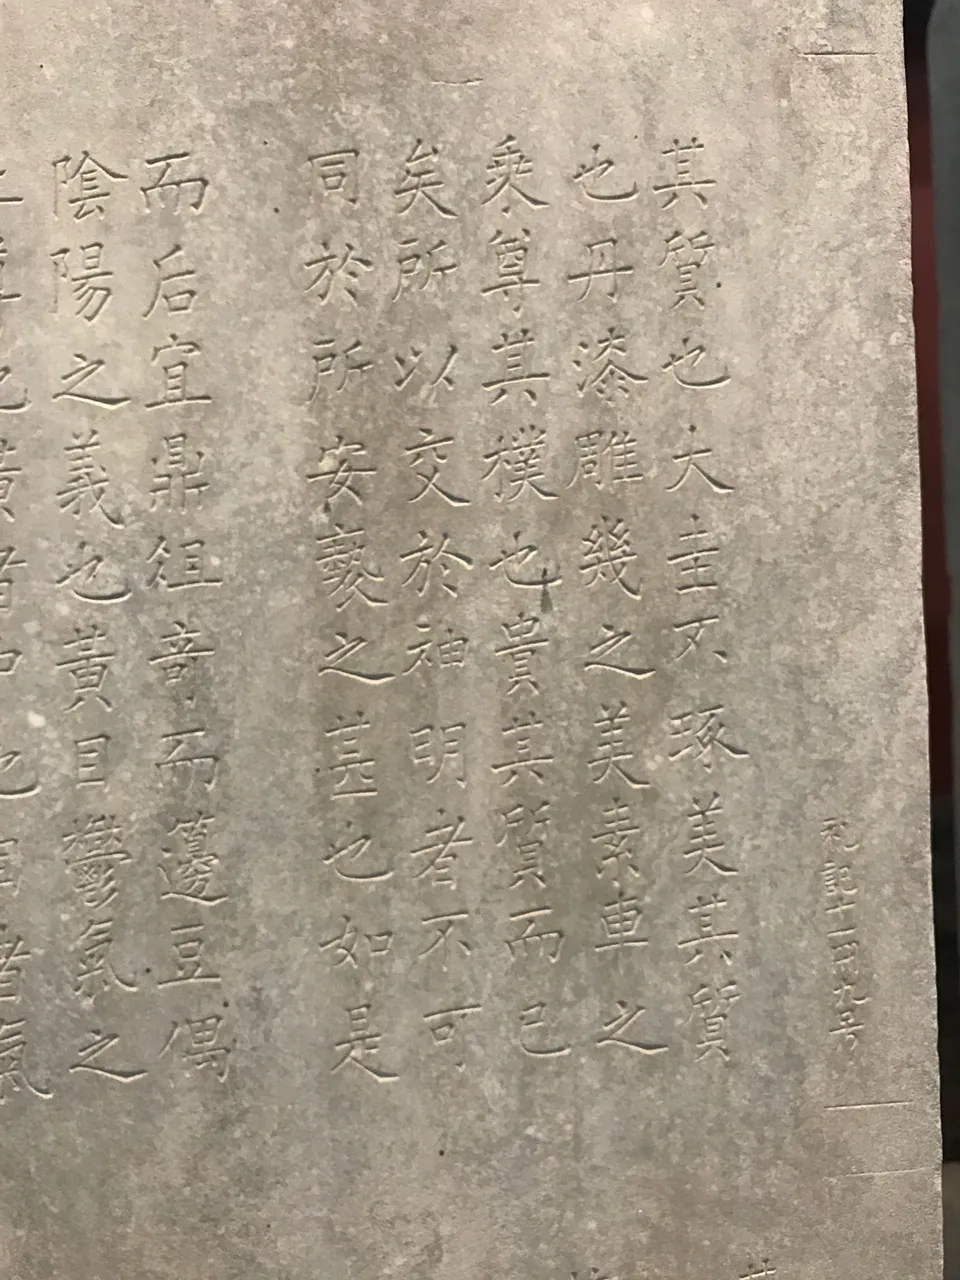 礼記十一九号
其質也大圭不琢美其質
也丹漆雕幾之美素車之
乘尊其樸也貴其質而已
矣所以交於神明者不可
同於所安褻之甚也如是
而后宜鼎俎奇而籩豆偶
陰陽之義也黃目鬱氣之